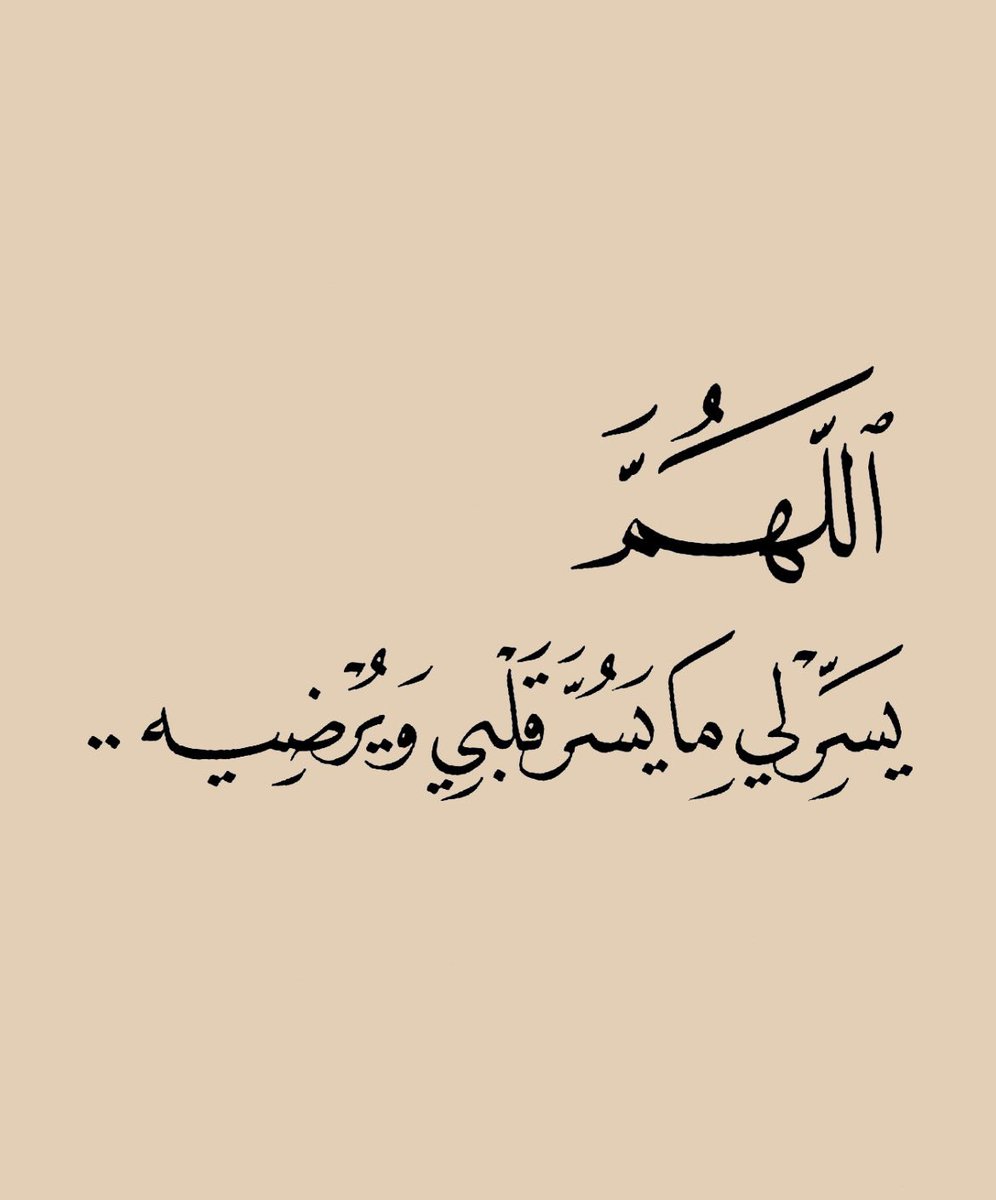 ٱللَّهُمَّ
يَسِّرْ لِي مِا يَسُرَّ قَلْبِي وَيُرْضِيه ..